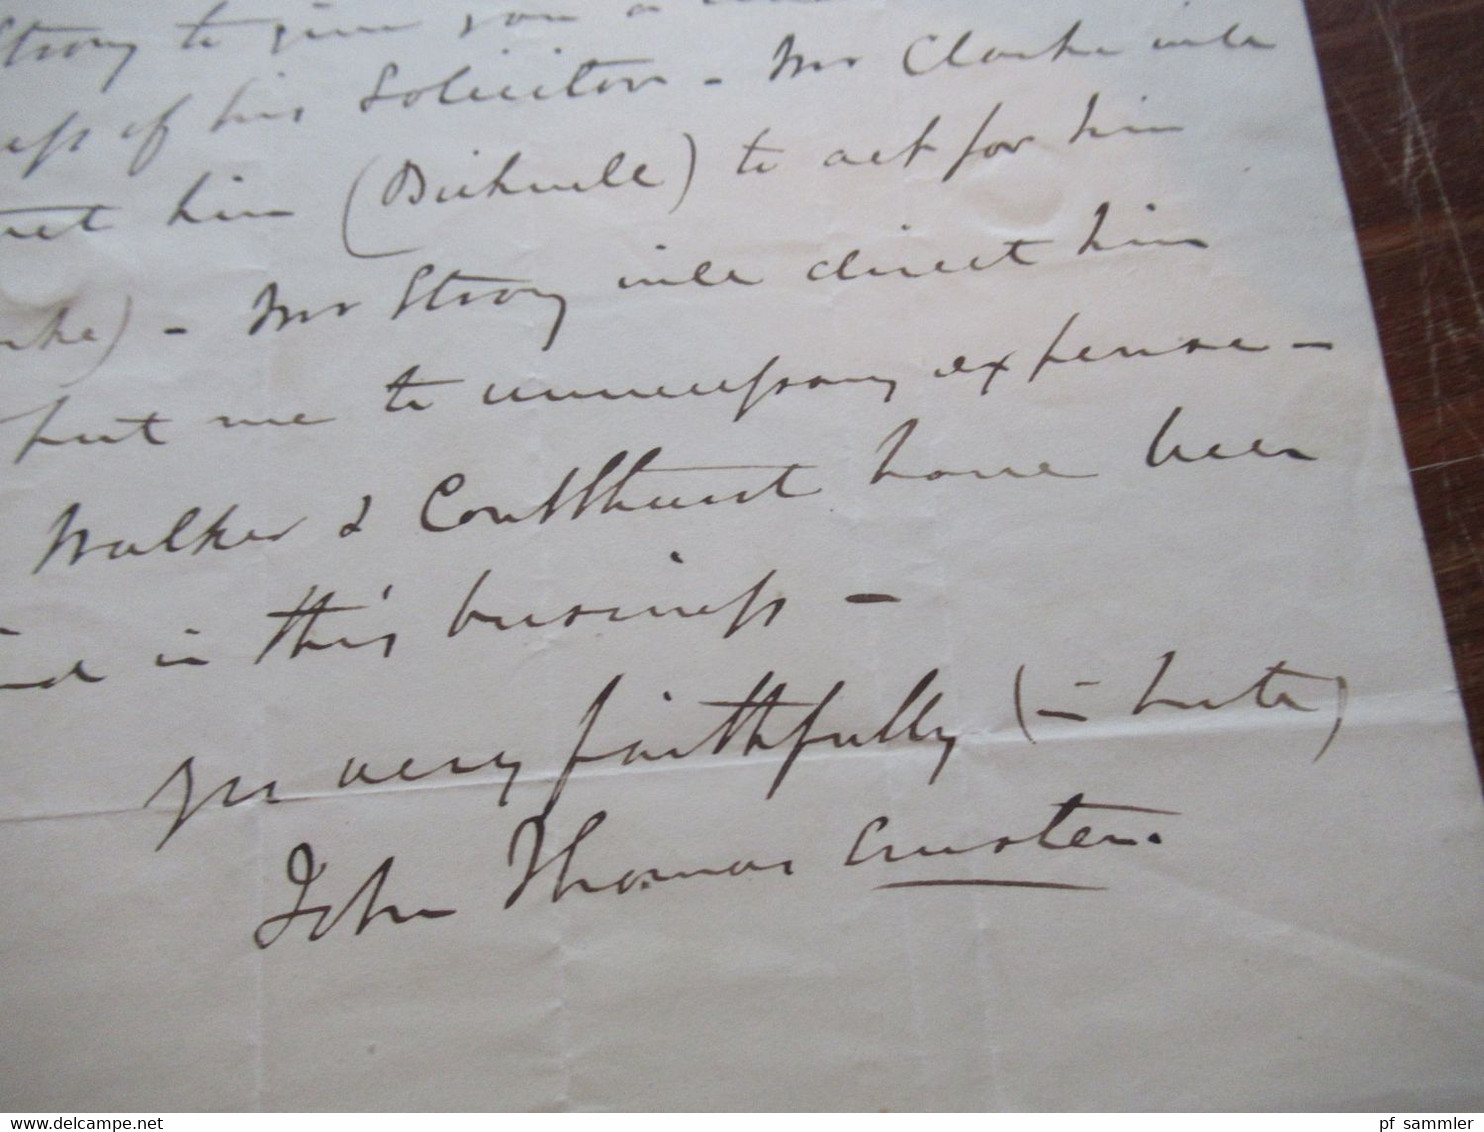 Strong to give you a
ess of his Solicitor - Mr Clarke will
him (Bicknell) to act for him
rke) - Mr Strong will direct him
put me to unnecessary expense -
Walker & Coulthurst have been
in this business -
yrs very faithfully (in haste)
John Thomas
www.delcampe.net
pf_sammler